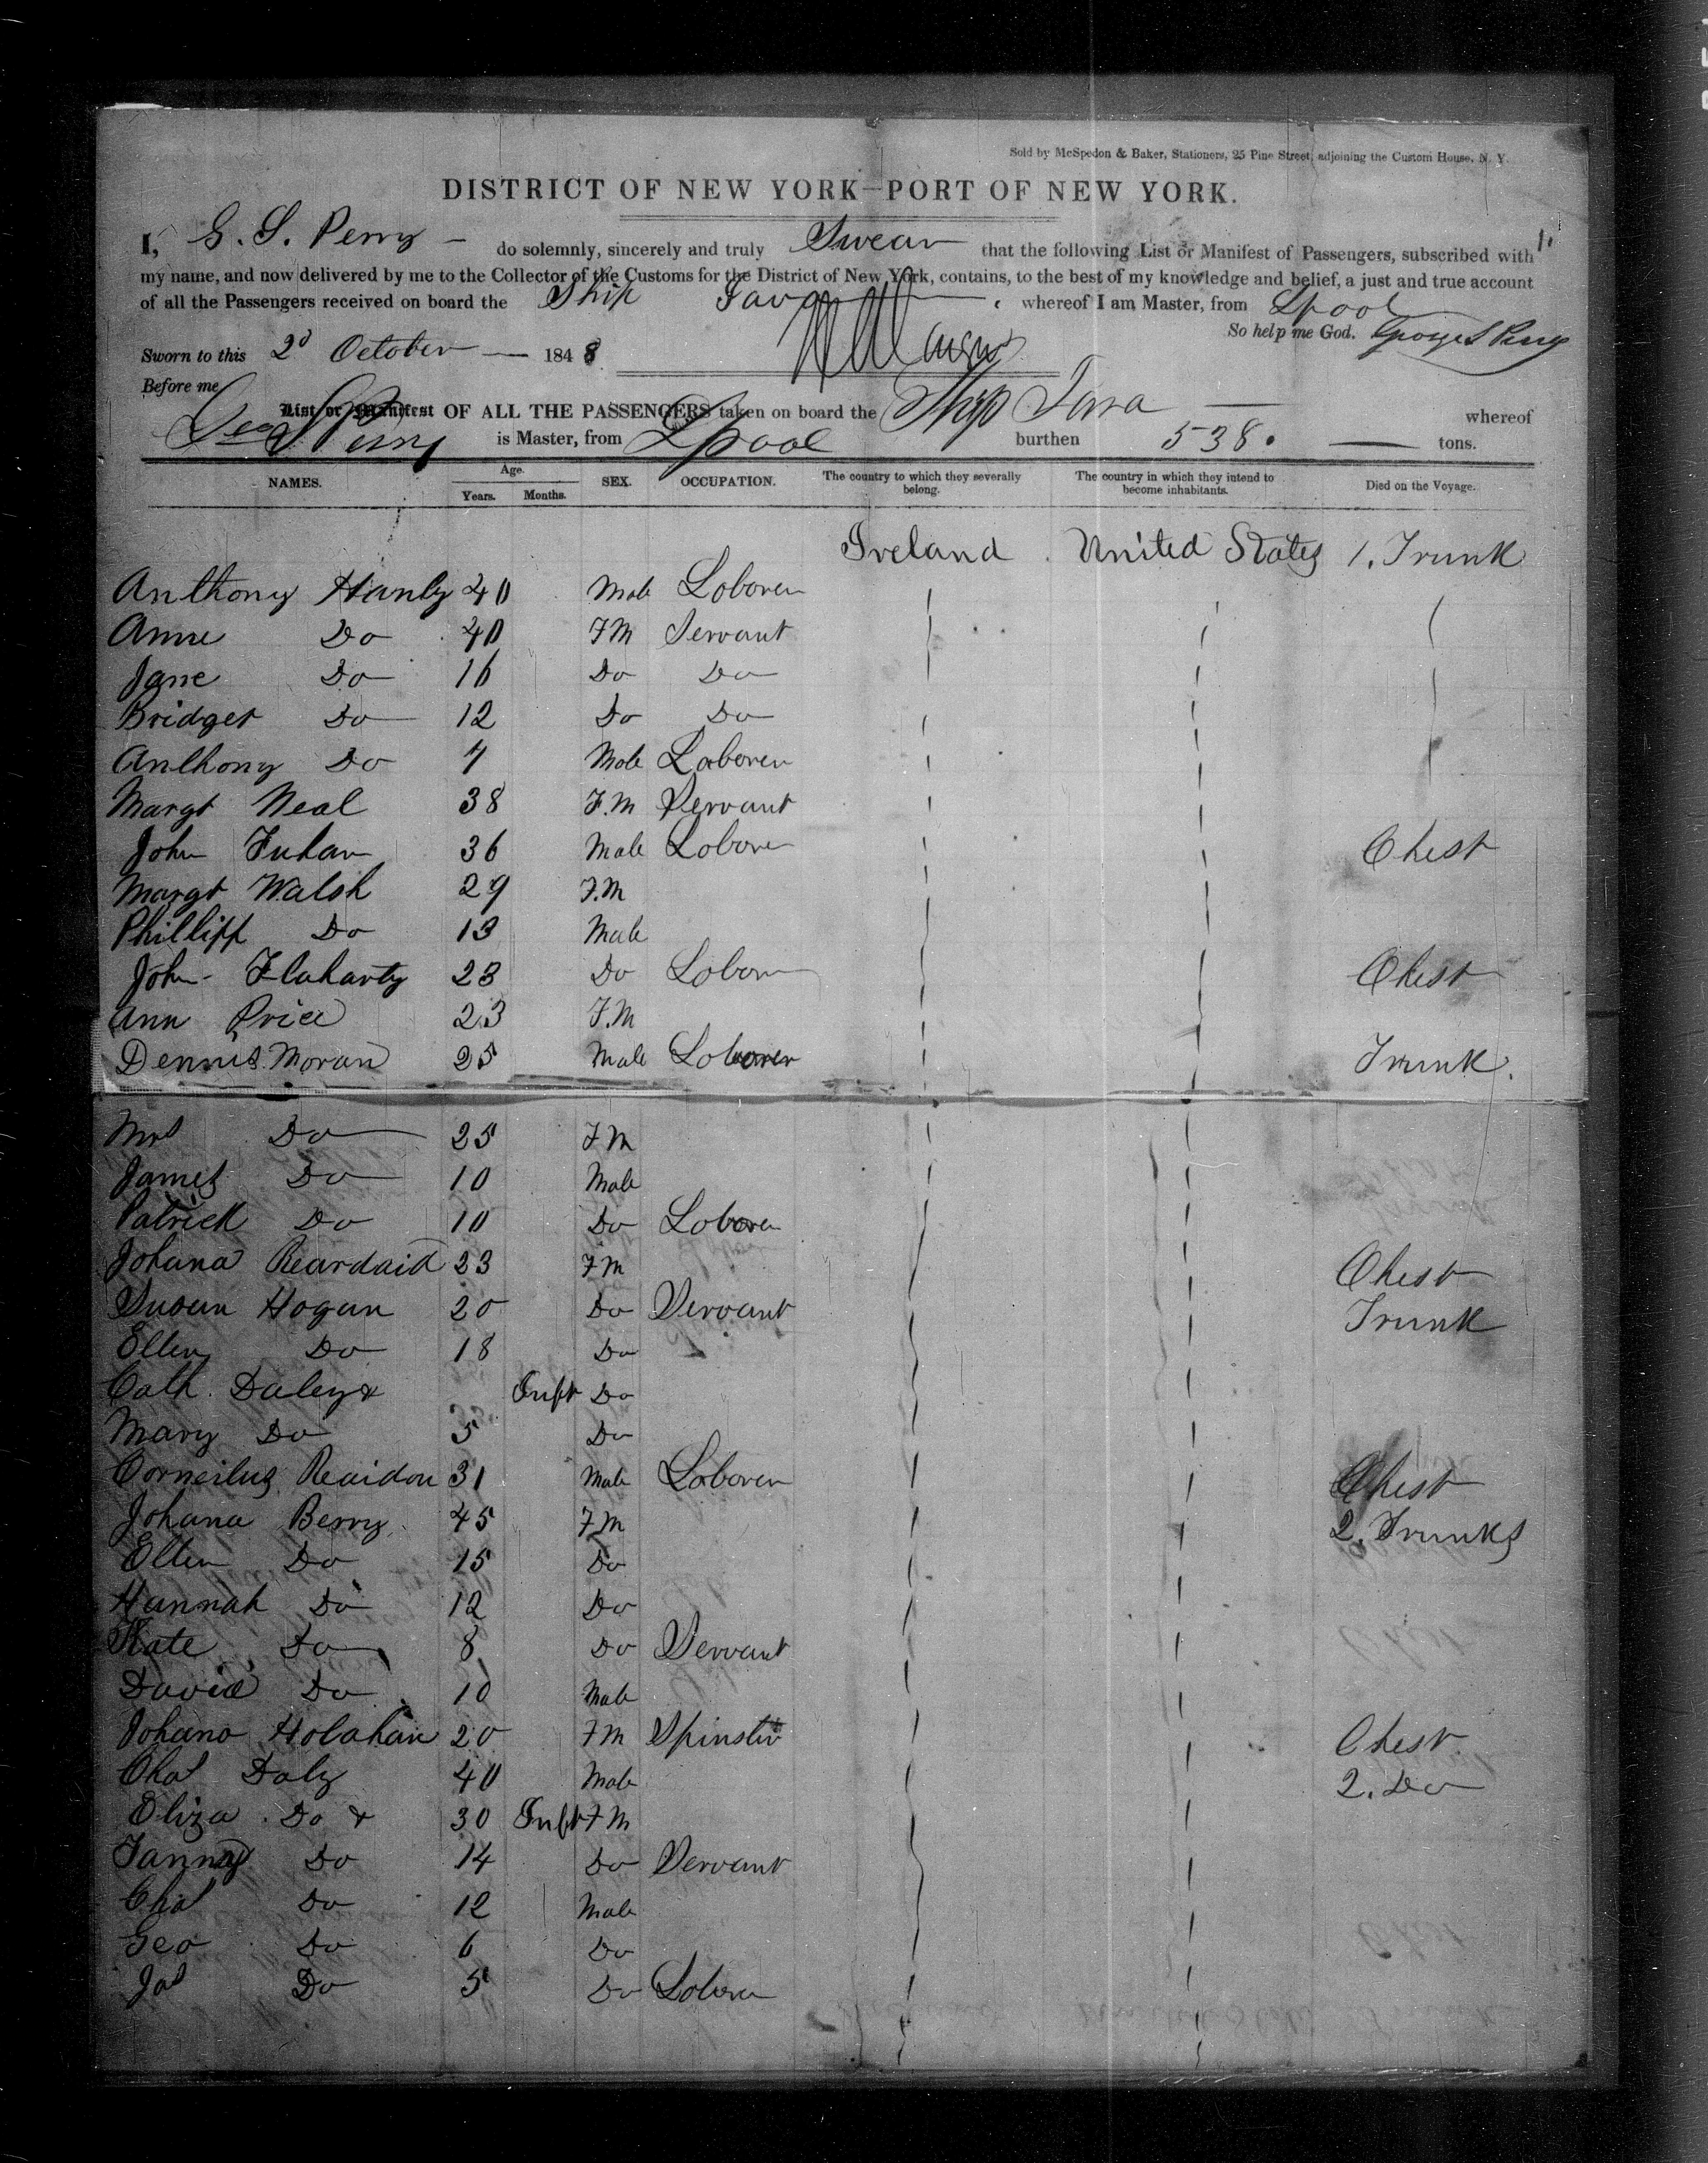 Sold by McSpedon & Baker, Stationers, 25 Pine Street, adjoining the Custom House, N. Y.
DISTRICT OF NEW YORK—PORT OF NEW YORK.
I, G. S. Perry - do solemnly, sincerely and truly Swear that the following List or Manifest of Passengers, subscribed with
my name, and now delivered by me to the Collector of the Customs for the District of New York, contains, to the best of my knowledge and belief, a just and true account
of all the Passengers received on board the Ship whereof I am Master, from Lpool
So help me God. George S Perry
Sworn to this 2d October 1848
Before me
List or Manifest OF ALL THE PASSENGERS taken on board the Ship Tara whereof
Geo S Perry is Master, from Lpool burthen 538. tons.
NAMES. Age. Years. Months. SEX. OCCUPATION. The country to which they severally belong. The country in which they intend to become inhabitants. Died on the Voyage.
Ireland United States 1. Trunk
Anthony Hanly 40 Male Laborer
Anne Do 40 FM Servant
Jane Do 16 Do Do
Bridget Do 12 Do Do
Anthony Do 7 Male Laborer
Margt Neal 38 F.M Servant
John 36 Male Laborer Chest
Margt Walsh 29 F.M
Phillipp Do 13 Male
John Flaharty 23 Do Labor Chest
Ann Price 23 F.M
Dennis Moran 25 Male Laborer Trunk.
Mrs Do 25 FM
James Do 10 Male
Patrick Do 10 Do Laborer
Johana 23 FM Chest
Susan Hogan 20 Do Servant Trunk
Ellen Do 18 Do
Cath. Daley & Inft Do
Mary Do 5 Do
Corneilus Reaidon 31 Male Laborer Chest
Johana Berry 45 FM 2. Trunks
Ellen Do 15 Do
Hannah Do 12 Do
Kate Do 8 Do Servant
David Do 10 Male
Johana Holahan 20 FM Spinster Chest
Chas Daly 40 Male 2. Do
Eliza Do & 30 Inft FM
Fanny Do 14 Do Servant
Chas Do 12 Male
Geo Do 6 Do
Jas Do 5 Do Laborer